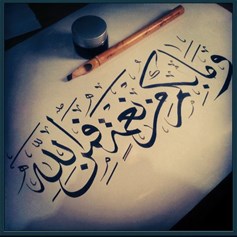 وَمَا بِكُمْ مِنْ نِعْمَةٍ فَمِنَ اللَّهِ